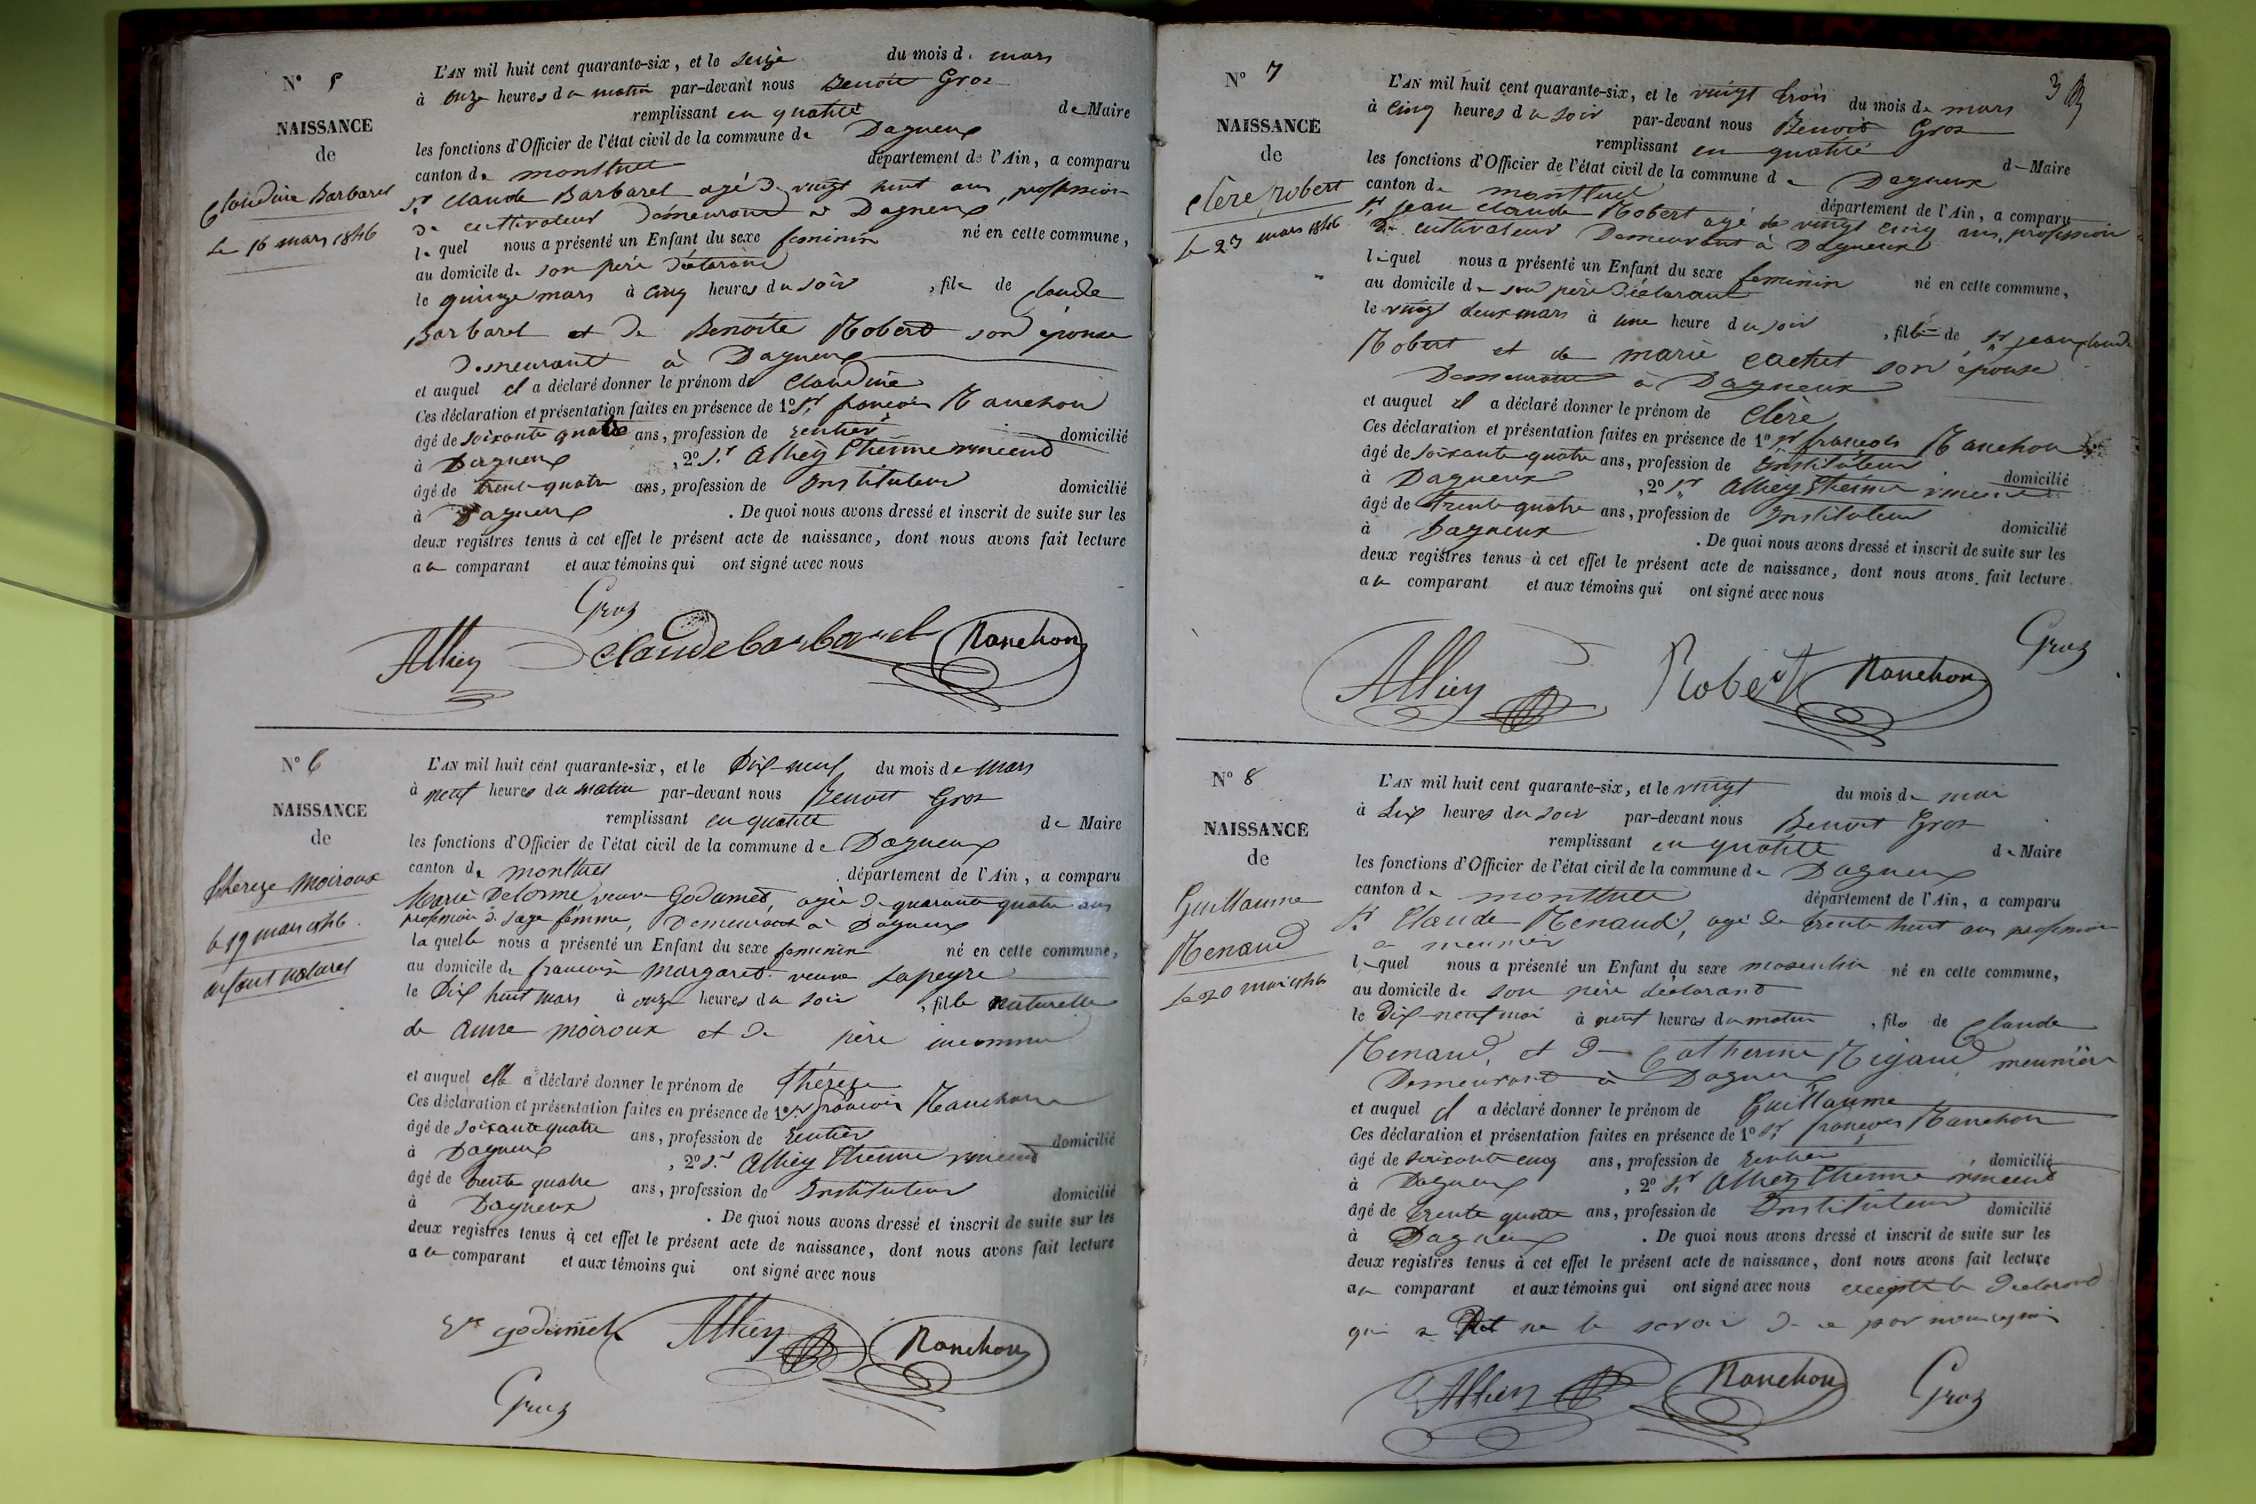 N° 5
NAISSANCE
de
Claudine Barbaret
Le 16 mars 1846
L'AN mil huit cent quarante-six, et le seize du mois de mars
à onze heures du matin par-devant nous Benoit Groz
remplissant en qualité de Maire
les fonctions d'Officier de l'état civil de la commune de Dagneux
canton de montluel département de l'Ain, a comparu
Sr. Claude Barbaret agé de vingt huit ans, profession
de cultivateur demeurant à Dagneux
lequel nous a présenté un Enfant du sexe feminin né en cette commune,
au domicile de son père déclarant
le quinze mars à cinq heures du soir, fille de Claude
Barbaret et de Benoite Robert son épouse
demeurant à Dagneux
et auquel il a déclaré donner le prénom de Claudine
Ces déclaration et présentation faites en présence de 1° Sr. françois Ranchon
âgé de soixante quatre ans, profession de rentier domicilié
à Dagneux, 2° Sr. Alhéy Etienne vincend
âgé de trente quatre ans, profession de Instituteur domicilié
à Dagneux. De quoi nous avons dressé et inscrit de suite sur les
deux registres tenus à cet effet le présent acte de naissance, dont nous avons fait lecture
au comparant et aux témoins qui ont signé avec nous
Groz
Alhéy Claude barbaret Ranchon
N° 6
NAISSANCE
de
thereze Moiroux
le 19 mars 1846
enfant naturel
L'AN mil huit cent quarante-six, et le Dix-neuf du mois de mars
à neuf heures du matin par-devant nous Benoit Groz
remplissant en qualité de Maire
les fonctions d'Officier de l'état civil de la commune de Dagneux
canton de montluel département de l'Ain, a comparu
Marie Delorme veuve Godamet, agée de quarante quatre ans
profession de sage femme, Demeurant à Dagneux
laquelle nous a présenté un Enfant du sexe feminin né en cette commune,
au domicile de francoise margaret veuve Lapeyre
le Dix huit mars à onze heures du soir, fille naturelle
de anne moiroux et de père inconnu
et auquel elle a déclaré donner le prénom de théreze
Ces déclaration et présentation faites en présence de 1° Sr. francois Ranchon
âgé de soixante quatre ans, profession de rentier domicilié
à Dagneux, 2° Sr. Alhéy Etienne vincend
âgé de trente quatre ans, profession de Instituteur domicilié
à Dagneux. De quoi nous avons dressé et inscrit de suite sur les
deux registres tenus à cet effet le présent acte de naissance, dont nous avons fait lecture
au comparant et aux témoins qui ont signé avec nous
Ve godamet Alhéy Ranchon
Groz
3
N° 7
NAISSANCE
de
clère robert
le 23 mars 1846
L'AN mil huit cent quarante-six, et le vingt trois du mois de mars
à cinq heures du soir par-devant nous Benoit Groz
remplissant en qualité de Maire
les fonctions d'Officier de l'état civil de la commune de Dagneux
canton de montluel département de l'Ain, a comparu
Sr. jean claude Robert agé de vingt cinq ans, profession
de cultivateur Demeurant à Dagneux
lequel nous a présenté un Enfant du sexe feminin né en cette commune,
au domicile de son père déclarant
le vingt deux mars à une heure du soir, fille de Sr. jean claude
Robert et de marie cachet son épouse
Demeurant à Dagneux
et auquel il a déclaré donner le prénom de Clère
Ces déclaration et présentation faites en présence de 1° Sr. françois Ranchon
âgé de soixante quatre ans, profession de Instituteur domicilié
à Dagneux, 2° Sr. Alhéy Etienne vincend
âgé de trente quatre ans, profession de Instituteur domicilié
à Dagneux. De quoi nous avons dressé et inscrit de suite sur les
deux registres tenus à cet effet le présent acte de naissance, dont nous avons fait lecture
au comparant et aux témoins qui ont signé avec nous
Groz
Alhéy Robert Ranchon
N° 8
NAISSANCE
de
Guillaume
Renaud
Le 20 mai 1846
L'AN mil huit cent quarante-six, et le vingt du mois de mai
à Six heures du soir par-devant nous Benoit Groz
remplissant en qualité de Maire
les fonctions d'Officier de l'état civil de la commune de Dagneux
canton de montluel département de l'Ain, a comparu
Sr. Claude Renaud, agé de trente huit ans profession
de meunier
lequel nous a présenté un Enfant du sexe masculin né en cette commune,
au domicile de son père déclarant
le Dix-neuf mai à neuf heures du matin, fils de Claude
Renaud, et de Catherine Rigaud meunier
Demeurant à Dagneux
et auquel il a déclaré donner le prénom de Guillaume
Ces déclaration et présentation faites en présence de 1° Sr. françois Ranchon
âgé de soixante cinq ans, profession de rentier domicilié
à Dagneux, 2° Sr. Alhéy Etienne vincend
âgé de trente quatre ans, profession de Instituteur domicilié
à Dagneux. De quoi nous avons dressé et inscrit de suite sur les
deux registres tenus à cet effet le présent acte de naissance, dont nous avons fait lecture
au comparant et aux témoins qui ont signé avec nous excepté le déclarant
qui a dit ne le savoir de ce par nous requis
Alhéy Ranchon Groz